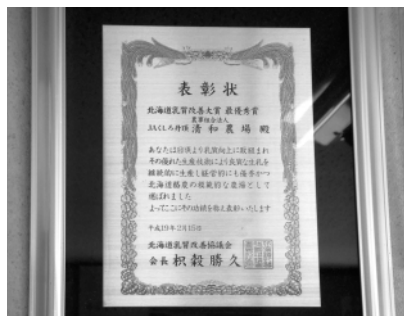 表彰状
北海道乳質改善大賞 最優秀賞
農事組合法人
JAくしろ丹頂 清和農場 殿
あなたは日頃より乳質向上に取組まれ
その優れた生産技術により良質な生乳を
継続的に生産し経営的にも優秀かつ
北海道酪農の模範的な農場として
選ばれました
よってここにその功績を称え表彰いたします
平成19年2月15日
北海道乳質改善協議会
会長 枳穀勝久